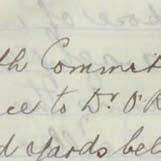 th Commit
ce to Dr O'R
d yards bel